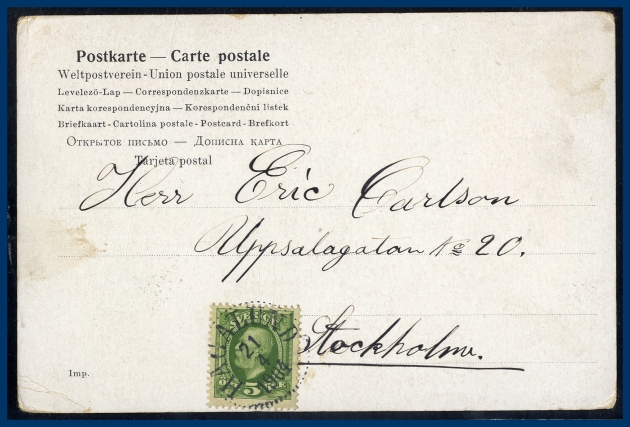 Postkarte — Carte postale
Weltpostverein - Union postale universelle
Levelező-Lap — Correspondenzkarte — Dopisnice
Karta korespondencyjna — Korespondenční lístek
Briefkaart - Cartolina postale - Postcard - Brefkort
Открытое письмо — Дописна карта
Tarjeta postal
Herr Eric Carlson
Uppsalagatan No 20.
Stockholm.
SVERIGE
21
4
5
Imp.